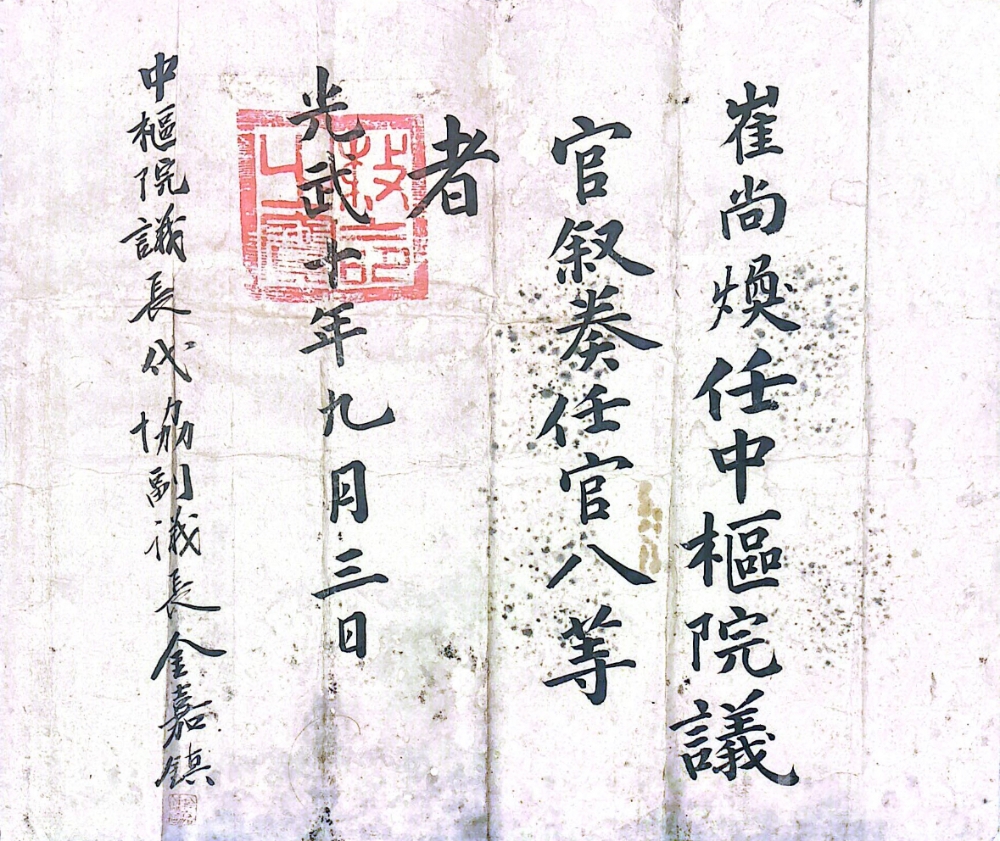 崔尚煥任中樞院議
官叙奏任官八等
者
光武十年九月三日
中樞院議長代辦副議長金嘉鎮